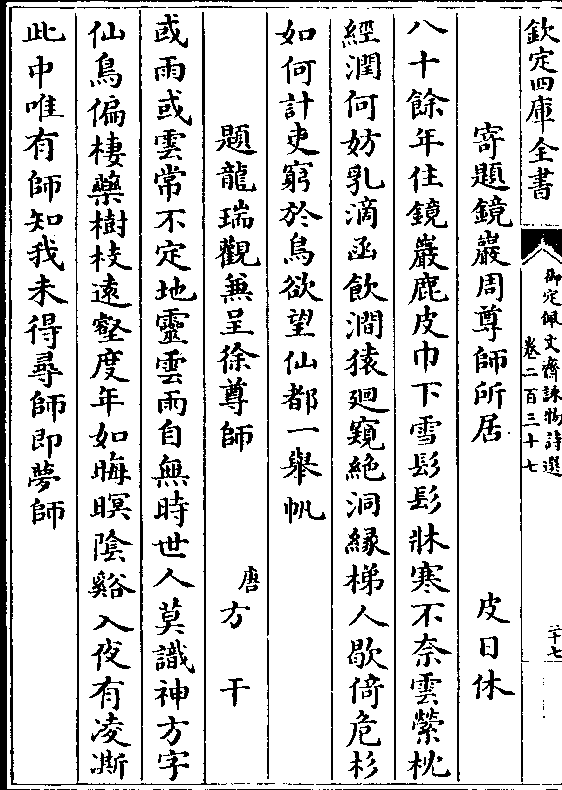 欽定四庫全書
御定佩文齋詠物詩選
卷二百三十七
二十七
寄題鏡巖周尊師所居 皮日休
八十餘年住鏡巖鹿皮巾下雪髟髟牀寒不奈雲縈枕
經潤何妨乳滴函飲澗猿廻窺絶洞縁梯人歇倚危杉
如何計吏窮於鳥欲望仙都一舉帆
題龍瑞觀兼呈徐尊師 唐方干
或雨或雲常不定地靈雲雨自無時世人莫識神方字
仙鳥偏棲藥樹枝遠壑度年如晦暝陰谿入夜有凌澌
此中唯有師知我未得尋師即夢師